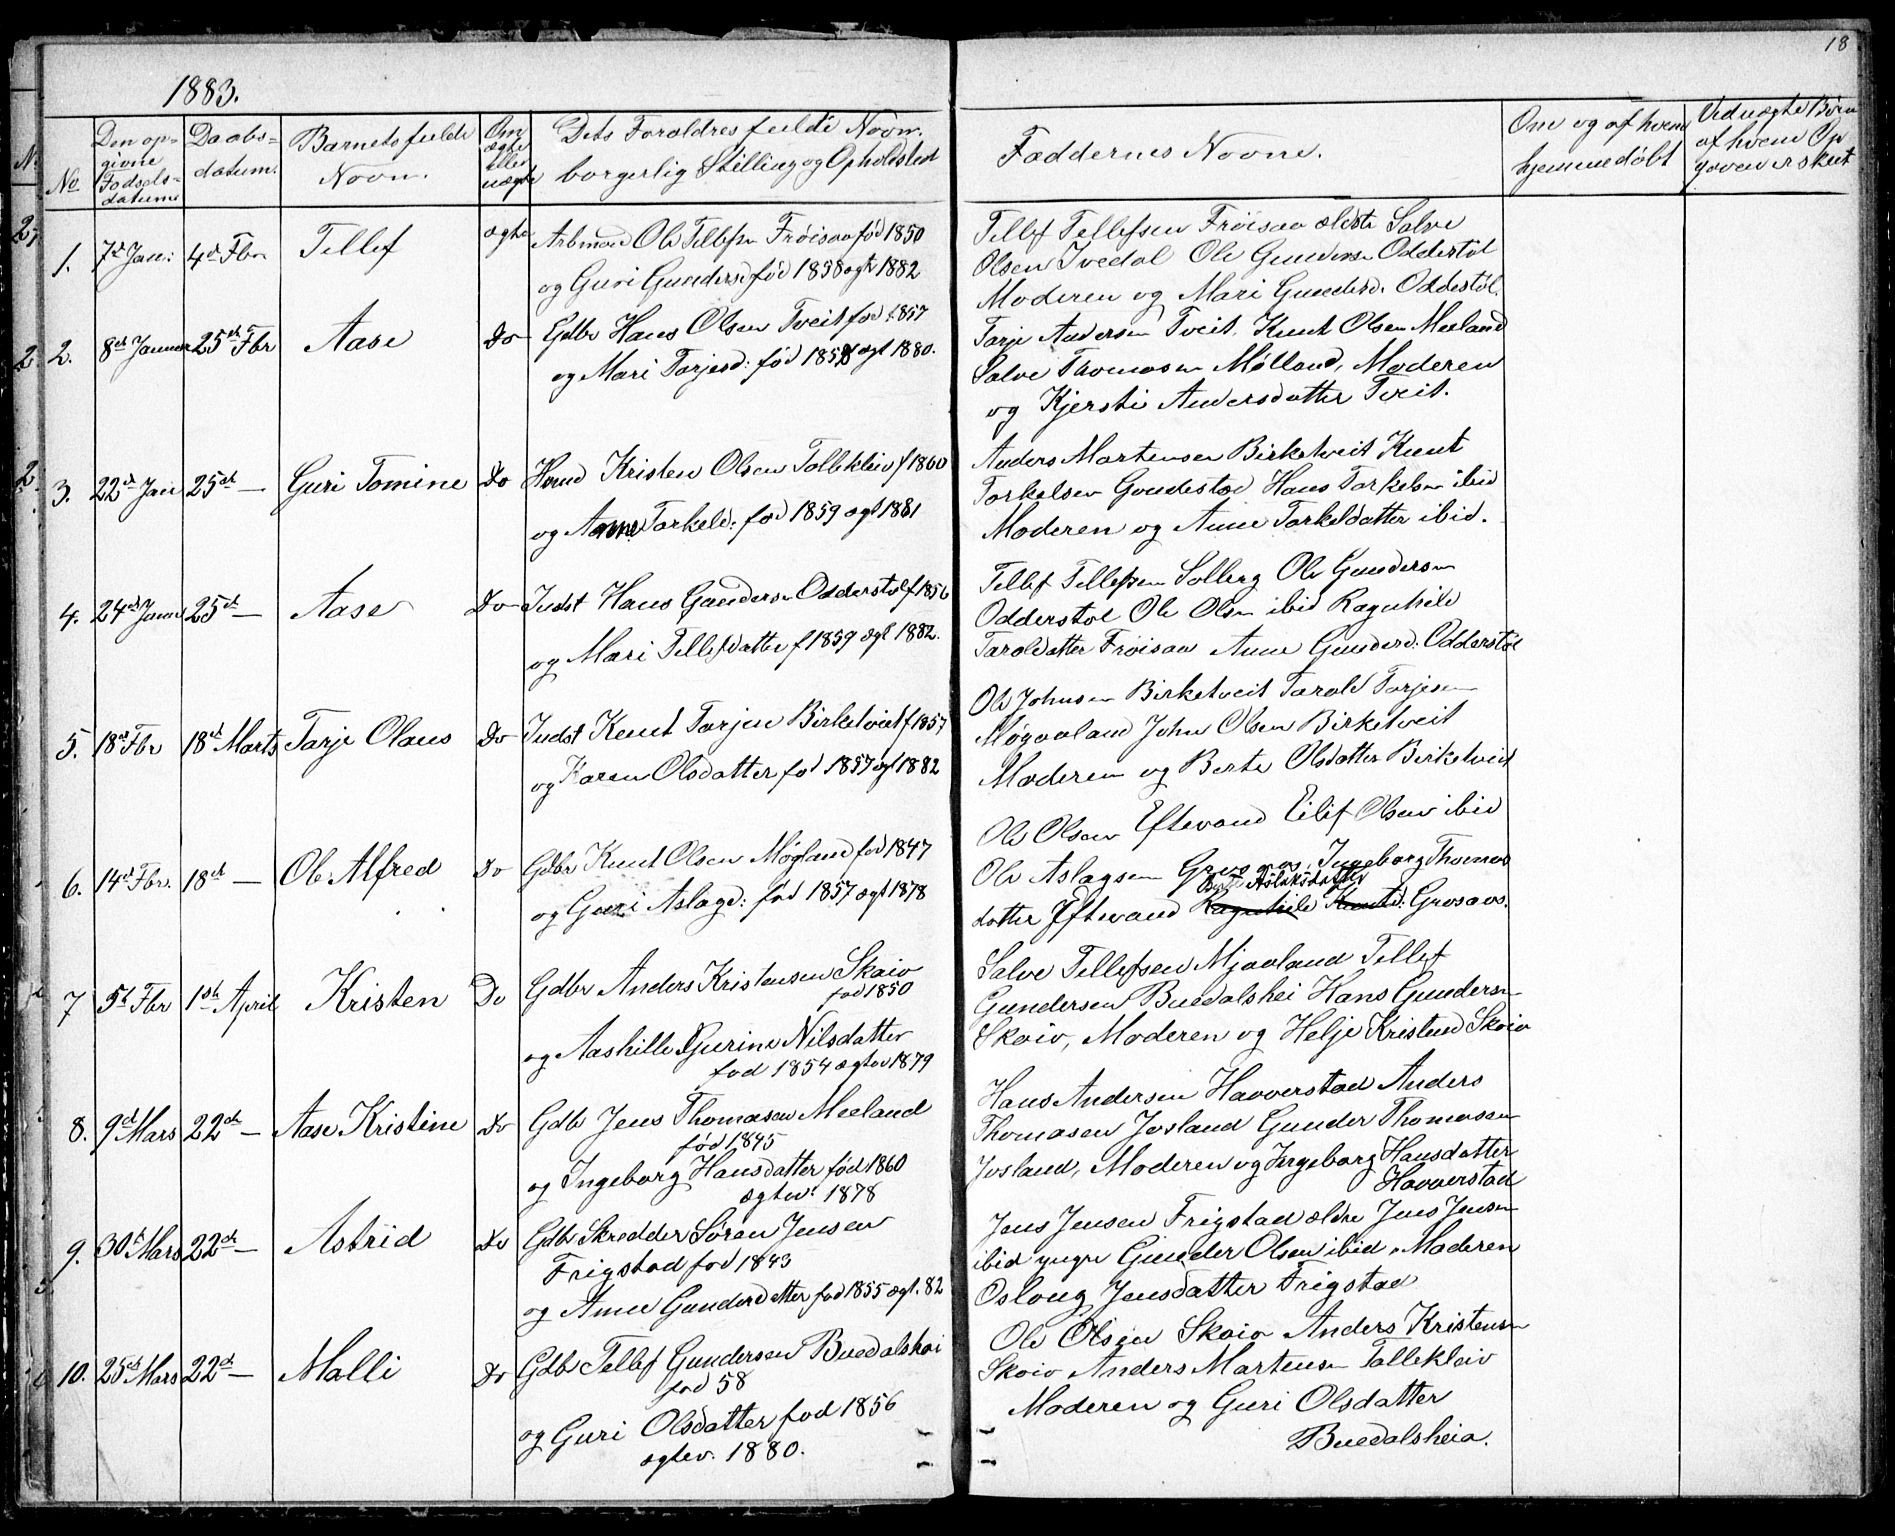 18
1883.
No
Den op-
givne
Fødsels-
datum
Daabs-
datum.
Barnets fulde
Navn.
Om
ægte
eller
uægte
Dets Forældres fulde Navn.
borgerlig Stilling og Opholdsted
Faddernes Navne.
Om og af hvem
hjemmedöbt
Ved uægte Børn
af hvem Op
gaven er skeet
1. 7d Jan: 4d Fbr Tellef ægte
Arbmand Ole Tellefsn Fröisaa fød 1850
og Guri Gundersd fød 1858 ægtv 1882
Tellef Tellefsen Fröisaa ældste Salve
Olsen Ivedal Ole Gundersn Odderstöl
Moderen og Mari Gundersd. Oddestöl.
2. 8de Januar 25de Fbr Aase Do
Gdbr Hans Olsen Tveit fød 1857
og Mari Tarjesd: fød 1858 ægt 1880.
Tarje Andersen Tveit, Knut Olsen Meeland
Salve Thomassen Mölland, Moderen
og Kjersti Andersdatter Tveit.
3. 22d Jan 25de — Guri Tomine Do
Hmd Kristen Olsen Tallekleiv f 1860
og Anne Tarkeld: fød 1859 ægt 1881
Anders Martensen Birketveit Knut
Torkelsen Haus Tarkelsn ibid
Moderen og Anne Tarkeldatter ibid.
4. 24de Janu 25de — Aase Do
Indst Hans Gundersn Odderstöl f 1856
og Mari Tellefdatter f 1859 ægt 1882.
Tellef Tellefsen Solberg Ole Gundersn
Odderstöl Ole Olsn ibid Ragnhild
Taroldatter Fröisaa Anne Gundersd: Odderstöl
5. 18de Fbr 18de Marts Tarje Olaus Do
Indst Knut Tarjesn Birketveit f 1857
og Karen Olsdatter fød 1857 ægt 1882
Ole Johnsen Birketveit Tarald Tarjesen
Møgaaland John Olsen Birketveit
Moderen og Berte Olsdatter Birketveit
6. 14de Fbr. 18de — Ole Alfred Do
Gdbr Knut Olsen Møgland fød 1847
og Guri Aslagd: fød 1857 ægt 1878
Ole Olsen Eftevand Eilif Olsen ibid
Ole Aslagsen Grosaas, Ingeborg Thomas
Aslaksdatter
datter Eftevand Ragnhild Knutd: Grosaas.
7 5te Fbr 1ste April Kristen Do
Gdbr Anders Kristensen Skaiv
fød 1850
og Aashille Gurine Nilsdatter
fød 1854 ægtev 1879
Salve Tellefsen Mjaaland Tellef
Gundersen Buedalshei Hans Gundersn
Skaiv, Moderen og Helje Kristensd Skaiv
8. 9de Mars 22de — Aase Kristine Do
Gdbr Jens Thomasen Meeland
fød 1845
og Ingeborg Hansdatter fød 1860
ægtev: 1878
Hans Andersen Haaverstad Anders
Thomasen Josland Gunder Thomasen
Josland, Moderen og Ingeborg Hansdatter
Haaverstad
9. 30te Mars 22de — Astrid Do
Gdbr Skrædder Søren Jensen
Frigstad fød 1843
og Anne Gundersdatter fød 1855 ægt. 82
Jens Jensen Frigstad ældre Jens Jensen
ibid yngre Gunder Olsen ibid, Moderen
Oslaug Jensdatter Frigstad
10. 25de Mars 22de — Malli Do
Gdbr Tellef Gundersen Buedalshei
fød 58
og Guri Olsdatter fød 1856
ægtev. 1880.
Ole Olsen Skaiv Anders Kristensn
Skaiv Anders Martensn Tallekleiv
Moderen og Guri Olsdatter
Buedalsheia.